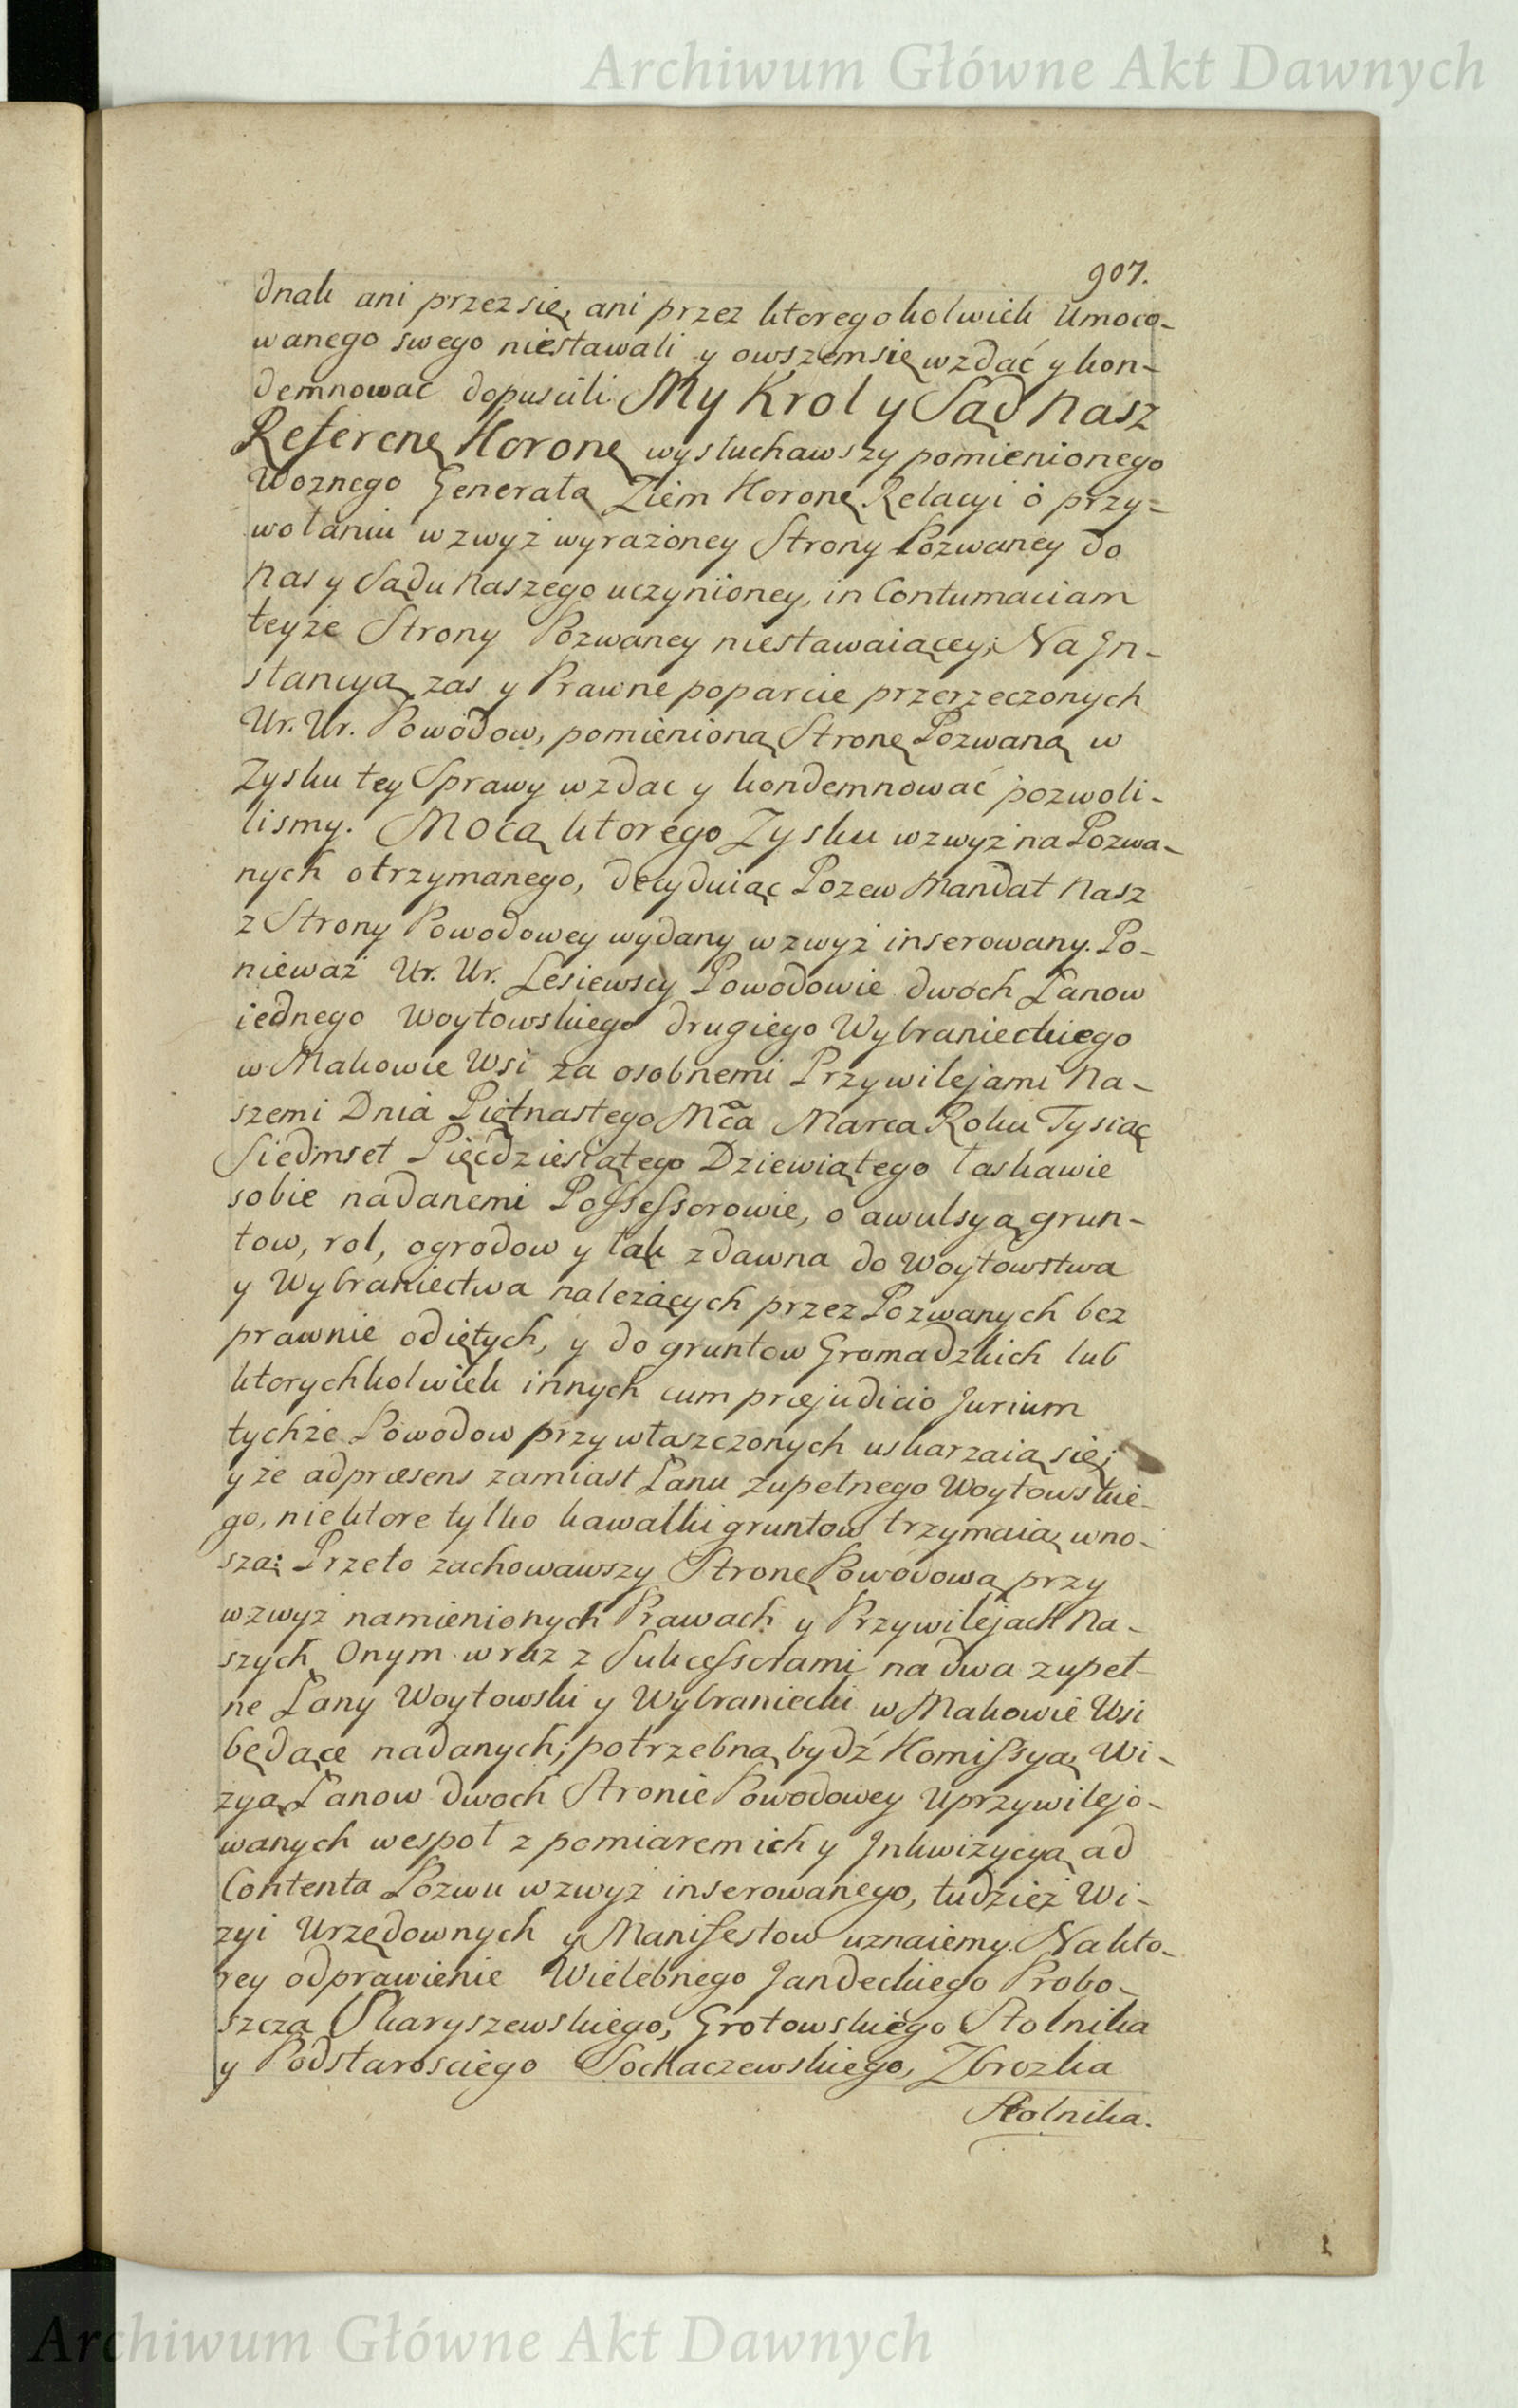 Archiwum Główne Akt Dawnych
907.
dnak ani przez się, ani przez ktoregokolwiek Umoco-
wanego swego niestawali y owszem się wzdać y kon-
demnować dopuscili. My Krol y Sąd Nasz
Referenę Koronę wysłuchawszy pomienionego
Woznego Generała Ziem Koronę Relacyi o przy-
wołaniu wzwyż wyrażoney Strony Pozwaney do
Nas y Sądu Naszego uczynioney, in Contumaciam
teyże Strony Pozwaney niestawaiącey; Na Jn-
stancyą zas y Prawne poparcie przerzeczonych
Ur. Ur. Powodow, pomienioną Stronę Pozwaną w
Zysku tey Sprawy wzdac y kondemnować pozwoli-
lismy. Mocą ktorego Zysku wzwyż na Pozwa-
nych otrzymanego, decyduiąc Pozew Mandat Nasz
z Strony Powodowey wydany wzwyż inserowany. Po-
nieważ Ur. Ur. Lesiewscy Powodowie dwoch Łanow
iednego Woytowskiego drugiego Wybranieckiego
w Makowie Wsi za osobnemi Przywilejami Na-
szemi Dnia Piętnastego Mca Marca Roku Tysiąc
Siedmset Pięcdziesiątego Dziewiątego łaskawie
sobie nadanemi Possessorowie, o awulsyą grun-
tow, rol, ogrodow y łąk zdawna do Woytowstwa
y Wybraniectwa należących przez Pozwanych bez
prawnie odiętych, y do gruntow Gromadzkich lub
ktorychkolwiek innych cum præjudicio Jurium
tychże Powodow przywłaszczonych uskarzaią się;
y że ad præsens zamiast Łanu zupełnego Woytowskie-
go, niektore tylko kawałki gruntow trzymaią wno-
szą: Przeto zachowawszy Stronę Powodową przy
wzwyż namienionych Prawach y Przywilejach Na-
szych Onym wraz z Sukcessorami na dwa zupeł-
ne Łany Woytowski y Wybraniecki w Makowie Wsi
będące nadanych; potrzebną bydź Komissyą, Wi-
zyą Łanow dwoch Stronie Powodowey Uprzywilejo-
wanych wespoł z pomiarem ich y Jnkwizycyą ad
Contenta Pozwu wzwyż inserowanego, tudzież Wi-
zyi Urzędownych y Manifestow uznaiemy. Na kto-
rey odprawienie Wielebnego Jandeckiego Probo-
szcza Skaryszewskiego, Grotowskiego Stolnika
y Podstarosciego Sochaczewskiego, Zbrozka
Stolnika.
Archiwum Główne Akt Dawnych